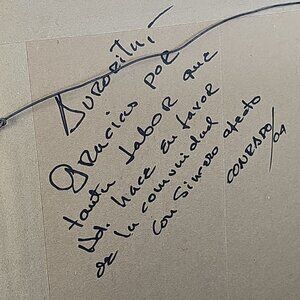 Gracias por
tanta labor que
Ud. hace en favor
de la comunidad
con sincero afecto
CONRADO/04